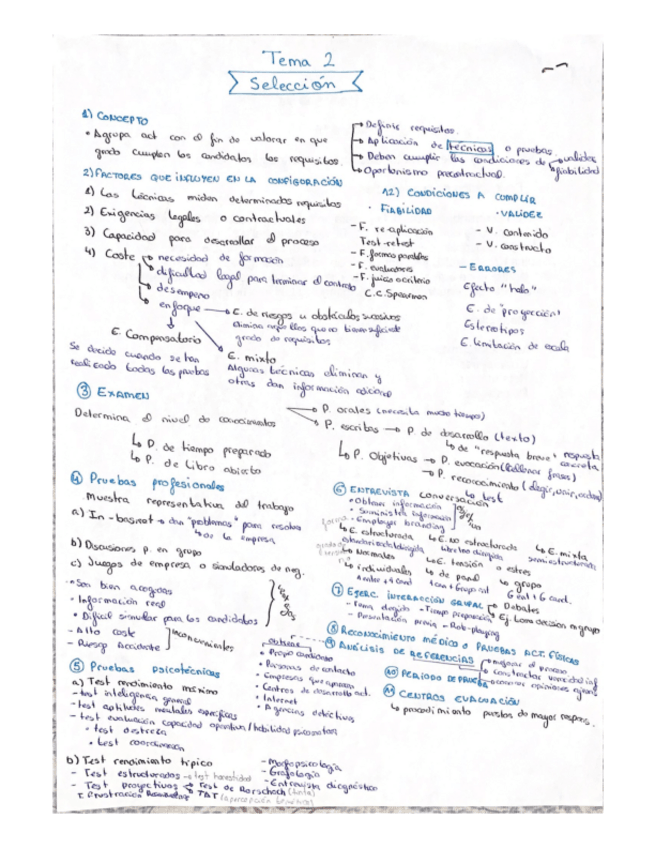 Tema 2
Selección
1) CONCEPTO
• Agrupa act con el fin de valorar en que
grado cumplen los candidatos los requisitos.
→ Definir requisitos.
→ Aplicación de técnicas o pruebas
→ Deben cumplir las condiciones de → validez
→ fiabilidad
→ Oportunismo precontractual.
2) FACTORES QUE INFLUYEN EN LA CONFIGURACIÓN
1) Las técnicas miden determinados requisitos
2) Exigencias legales o contractuales
3) Capacidad para desarrollar el proceso
4) Coste → necesidad de formación
→ dificultad legal para terminar el contrato
→ desempeño
→ enfoque → E. de riesgos u obstáculos sucesivos
Elimina aquellos que no tienen suficiente
grado de requisitos
E. Compensatorio
Se decide cuando se han
realizado todas las pruebas
E. mixto
Algunas técnicas eliminan y
otras dan información adicional
12) CONDICIONES A CUMPLIR
• FIABILIDAD
- F. re-aplicación
Test-retest
- F. formas paralelas
- F. evaluadores
- F. juicio o criterio
C.C. Spearman
• VALIDEZ
- V. contenido
- V. constructo
- ERRORES
Efecto "halo"
E. de "proyección"
Estereotipos
E. limitación de escala
3 EXAMEN
Determina el nivel de conocimientos
→ P. orales (necesita mucho tiempo)
→ P. escritas → P. de desarrollo (texto)
↳ de "respuesta breve" → respuesta
concreta
↳ P. de tiempo preparado
↳ P. de libro abierto
↳ P. Objetivas → P. evocación (rellenar frases)
→ P. reconocimiento (elegir, unir, ordenar)
↳ test
4 Pruebas profesionales
Muestra representativa del trabajo
a) In-basket → dan "problemas" para resolver
↳ de la empresa
b) Discusiones p. en grupo
c) Juegos de empresa o simuladores de neg.
• Son bien acogidas
• Información real
• Difícil simular para los candidatos
- Alto coste
- Riesgo Accidente
Inconvenientes
5 Pruebas psicotécnicas
a) Test rendimiento máximo
- test inteligencia general
- test aptitudes mentales específicas
- test evaluación capacidad operativa/habilidad psicomotora
• test destreza
• test coordinación
b) Test rendimiento típico
- Test estructurados → test honestidad
- Test proyectivos → Test de Rorschach (tinta)
T. Frustración Rosenzweig TAT
- Morfopsicología
- Grafología
- Entrevista diagnóstico
6 ENTREVISTA conversación
• Obtener información
• Suministra información
• Employer branding
forma
↳ E. estructurada
↳ E. no estructurada
↳ E. mixta
semiestructurada
↳ Normales
↳ E. tensión o estres
↳ individuales
↳ de panel
↳ grupo
7 EJERC. INTERACCIÓN GRUPAL → Debates
→ Ej. toma decisión en grupo
- Tema elegido - Tiempo preparación
- Presentación previa - Rol-playing
8 RECONOCIMIENTO MÉDICO o PRUEBAS ACT. FÍSICAS
9 ANÁLISIS DE REFERENCIAS
→ mejorar el proceso
→ contrastar veracidad inf
→ conocer opiniones ajenas
obtiene
• Propio candidato
• Personas de contacto
• Empresas que aparecen
• Centros de desarrollo act.
• Internet
• Agencias detectives
10 PERIODO DE PRUEBA
11 CENTROS EVALUACIÓN
↳ procedimiento puestos de mayor respons.